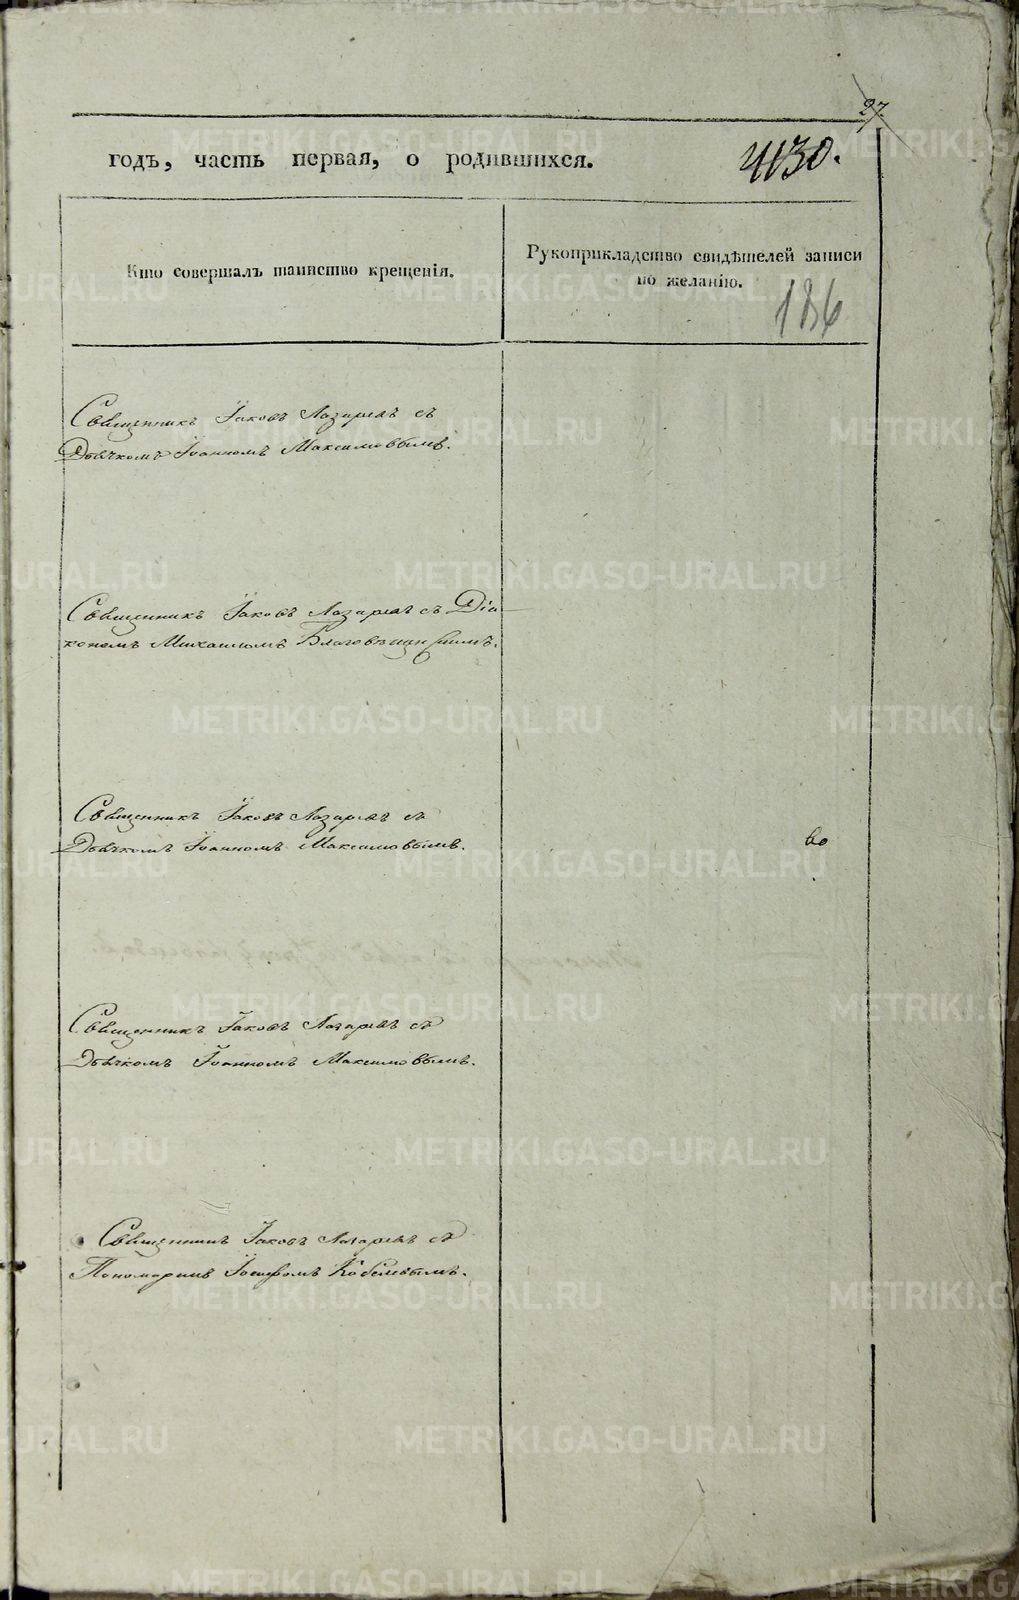 27.
годъ, часть первая, о родившихся.
4130.
Кто совершалъ таинство крещенія.
Рукоприкладство свидѣтелей записи
по желанію.
186
Священникъ Іаковъ Лазаревъ съ
Дьячкомъ Іоанномъ Максимовымъ.
Священникъ Іаковъ Лазаревъ съ Діа
кономъ Михаиломъ Благовѣщенскимъ.
Священникъ Іаковъ Лазаревъ съ
Дьячкомъ Іоанномъ Максимовымъ.
во
Священникъ Іаковъ Лазаревъ съ
Дьячкомъ Іоанномъ Максимовымъ.
Священникъ Іаковъ Лазаревъ съ
Пономаремъ Іосифомъ Кобелевымъ.
METRIKI.GASO-URAL.RU